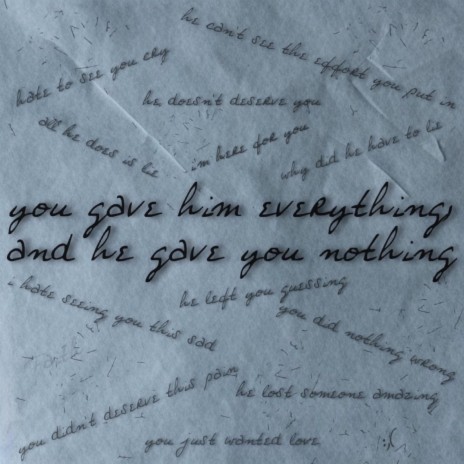 he can't see the effort you put in
hate to see you cry
he doesn't deserve you
all he does is lie
i'm here for you
why did he have to lie
you gave him everything,
and he gave you nothing
i hate seeing you this sad
he left you guessing
you did nothing wrong
you didn't deserve this pain
he lost someone amazing
you just wanted love
:(